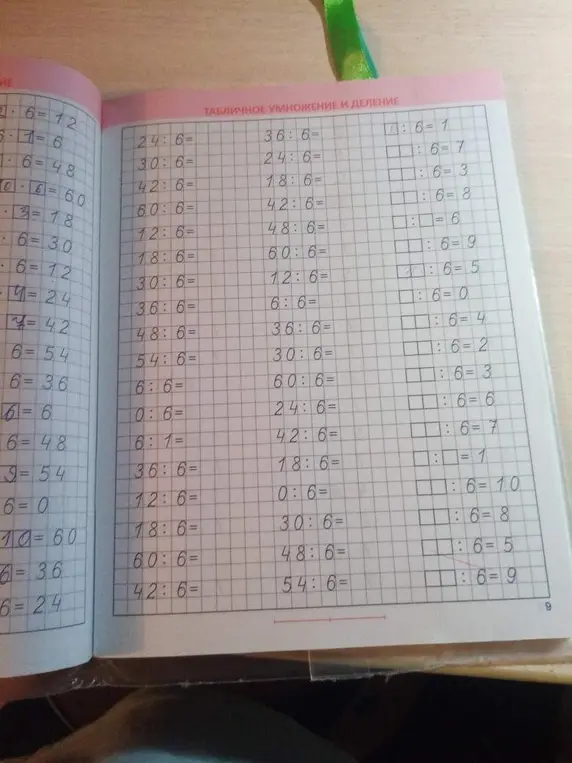 ИЕ
· 6 = 12
· 1 = 6
· 6 = 48
· 6 = 60
· 3 = 18
· 6 = 30
· 6 = 12
· 4 = 24
7 = 42
6 = 54
6 = 36
6 = 6
6 = 48
9 = 54
6 = 0
10 = 60
6 = 36
6 = 24
ТАБЛИЧНОЕ УМНОЖЕНИЕ И ДЕЛЕНИЕ
24 : 6 =
30 : 6 =
42 : 6 =
60 : 6 =
12 : 6 =
18 : 6 =
30 : 6 =
36 : 6 =
48 : 6 =
54 : 6 =
6 : 6 =
0 : 6 =
6 : 1 =
36 : 6 =
12 : 6 =
18 : 6 =
60 : 6 =
42 : 6 =
36 : 6 =
24 : 6 =
18 : 6 =
42 : 6 =
48 : 6 =
60 : 6 =
12 : 6 =
6 : 6 =
36 : 6 =
30 : 6 =
60 : 6 =
24 : 6 =
42 : 6 =
18 : 6 =
0 : 6 =
30 : 6 =
48 : 6 =
54 : 6 =
: 6 = 1
: 6 = 7
: 6 = 3
: 6 = 8
: = 6
: 6 = 9
: 6 = 5
: 6 = 0
: 6 = 4
: 6 = 2
: 6 = 3
: 6 = 6
: 6 = 7
: = 1
: 6 = 10
: 6 = 8
: 6 = 5
: 6 = 9
9